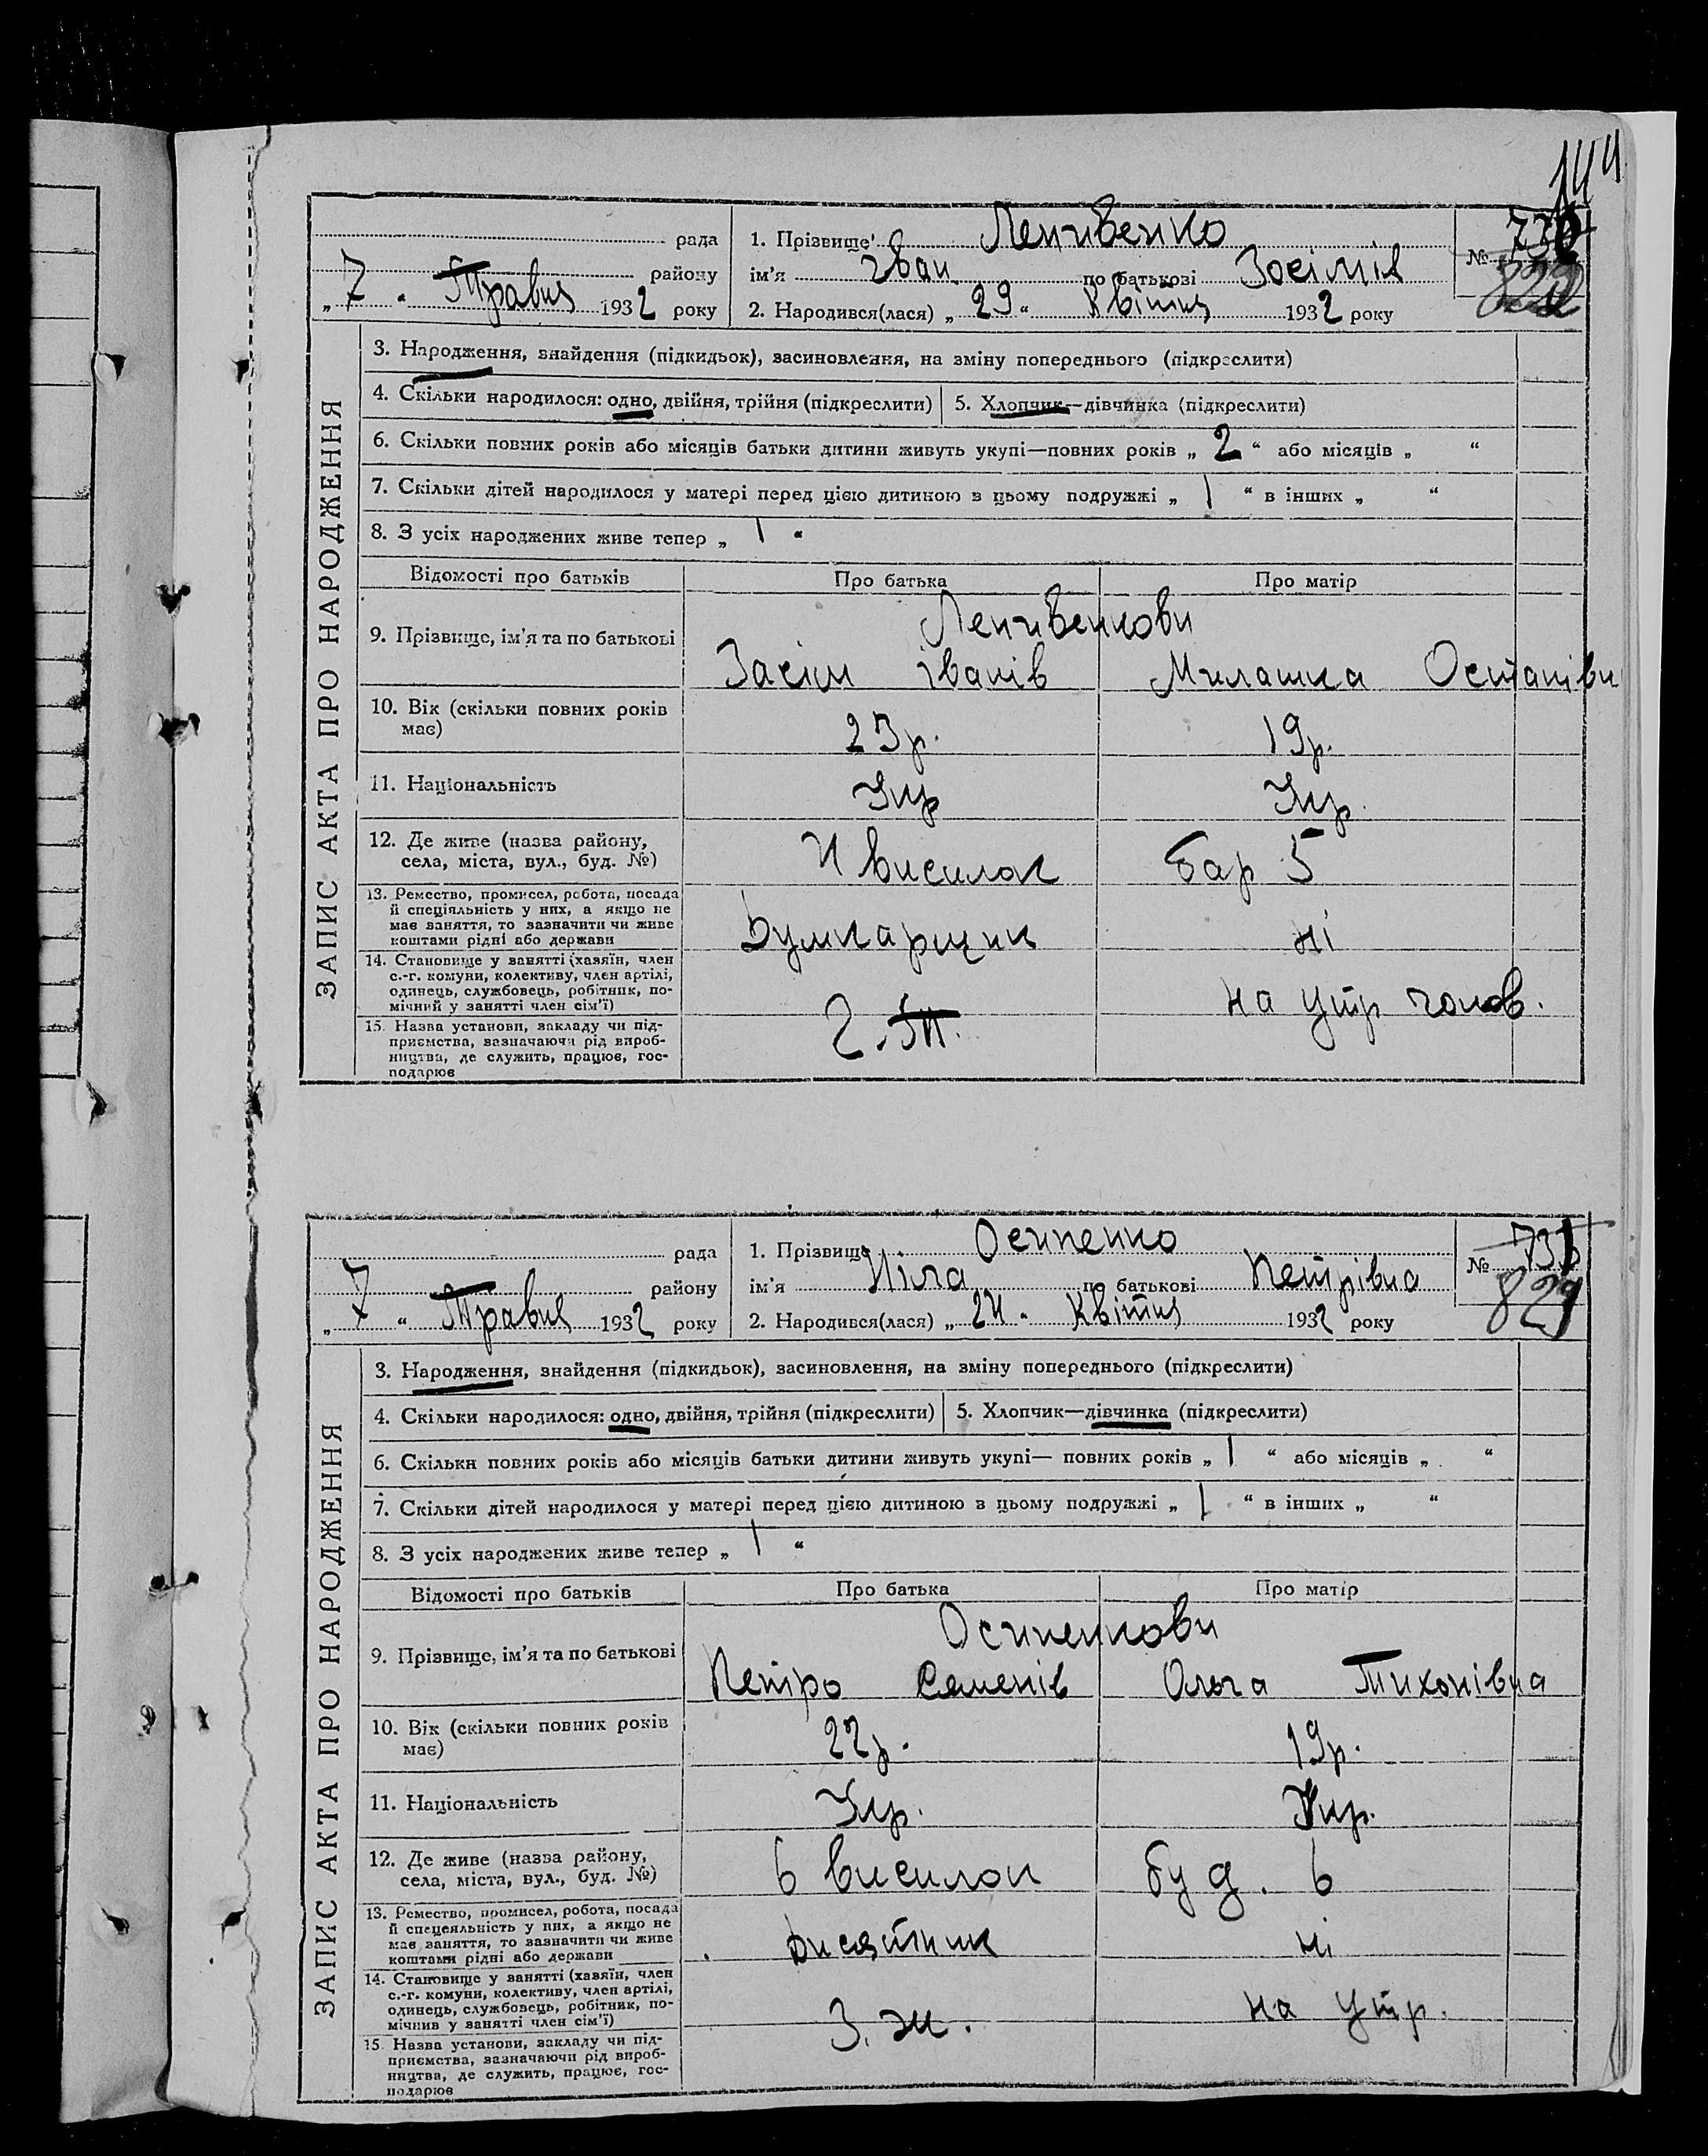 144
рада
1. Прізвище Ленивенко
№ 730
району
ім’я Іван по батькові Зосімів
822
„ 7 “ Травня 1932 року
2. Народився(лася) „ 29 “ Квітня 1932 року
ЗАПИС АКТА ПРО НАРОДЖЕННЯ
3. Народження, знайдення (підкидьок), засиновлення, на зміну попереднього (підкреслити)
4. Скільки народилося: одно, двійня, трійня (підкреслити) 5. Хлопчик—дівчинка (підкреслити)
6. Скільки повних років або місяців батьки дитини живуть укупі—повних років „ 2 “ або місяців „ “
7. Скільки дітей народилося у матері перед цією дитиною в цьому подружжі „ 1 “ в інших „ “
8. З усіх народжених живе тепер „ 1 “
Відомості про батьків Про батька Про матір
Ленивенкови
9. Прізвище, ім’я та по батькові
Засім Іванів Милашка Остапівн
10. Вік (скільки повних років
має)
23р. 19р.
11. Національність Укр Укр.
12. Де живе (назва району,
села, міста, вул., буд. №)
4 висилок бар 5
13. Ремество, промисел, робота, посада
й спеціяльність у них, а якщо не
має заняття, то зазначити чи живе
коштами рідні або держави
ні
14. Становище у занятті (хазяїн, член
с.-г. комуни, колективу, член артілі,
одинець, службовець, робітник, по-
мічний у занятті член сім’ї)
на утр чолов.
15. Назва установи, закладу чи під-
приємства, зазначаючи рід вироб-
ництва, де служить, працює, гос-
подарює
рада
1. Прізвище Осипенко
№ 731
району
ім’я Ніла по батькові Петрівна
829
„ 7 “ Травня 1932 року
2. Народився(лася) „ 24 “ Квітня 1932 року
ЗАПИС АКТА ПРО НАРОДЖЕННЯ
3. Народження, знайдення (підкидьок), засиновлення, на зміну попереднього (підкреслити)
4. Скільки народилося: одно, двійня, трійня (підкреслити) 5. Хлопчик—дівчинка (підкреслити)
6. Скільки повних років або місяців батьки дитини живуть укупі— повних років „ 1 “ або місяців „ “
7. Скільки дітей народилося у матері перед цією дитиною в цьому подружжі „ 1 “ в інших „ “
8. З усіх народжених живе тепер „ 1 “
Відомості про батьків Про батька Про матір
Осипенкови
9. Прізвище, ім’я та по батькові
Петро Семенів Ольга Тихонівна
10. Вік (скільки повних років
має)
22р. 19р.
11. Національність Укр. Укр.
12. Де живе (назва району,
села, міста, вул., буд. №)
6 висилок буд. 6
13. Ремество, промисел, робота, посада
й спецеяльність у них, а якщо не
має заняття, то зазначити чи живе
коштами рідні або держави
ні
14. Становище у занятті (хазяїн, член
с.-г. комуни, колективу, член артілі,
одинець, службовець, робітник, по-
мічнив у занятті член сім’ї)
на утр.
15. Назва установи, закладу чи під-
приємства, зазначаючи рід вироб-
ництва, де служить, працює, гос-
подарює